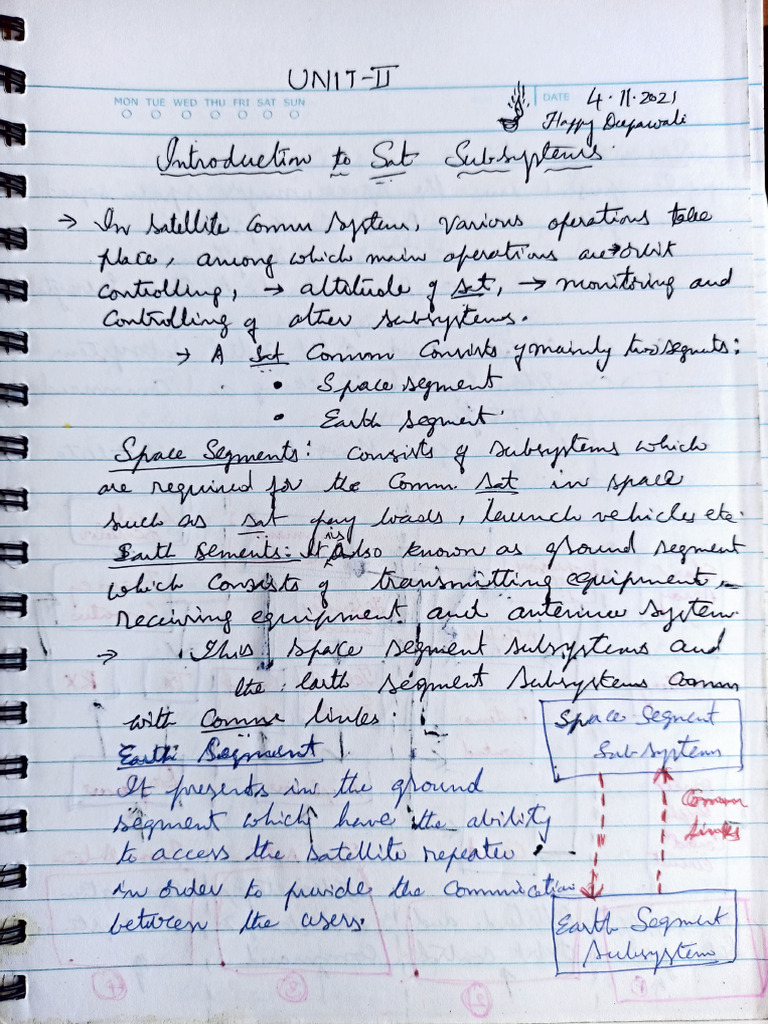 UNIT-II
MON TUE WED THU FRI SAT SUN
DATE 4.11.2021
Happy Deepawali
Introduction to Sat Subsystems
→ In satellite Comm System, various operations take
place, among which main operations are → orbit
controlling, → altitude of sat, → monitoring and
Controlling of other subsystems.
→ A Sat Common Consists of mainly two segments:
• Space segment
• Earth segment
Space Segments: consists of subsystems which
are required for the Comm sat in space
such as sat pay loads, launch vehicles etc.
Earth Sements: It is also known as ground segment
which consists of transmitting equipment,
receiving equipment and antenna system.
→ This space segment subsystems and
the earth segment subsystems comm
with Comm links.
Space Segment
Subsystems
Earth Segment
It presents in the ground
segment which have the ability
to access the satellite repeater
in order to provide the communication
between the users.
Comm
links
Earth Segment
Subsystem